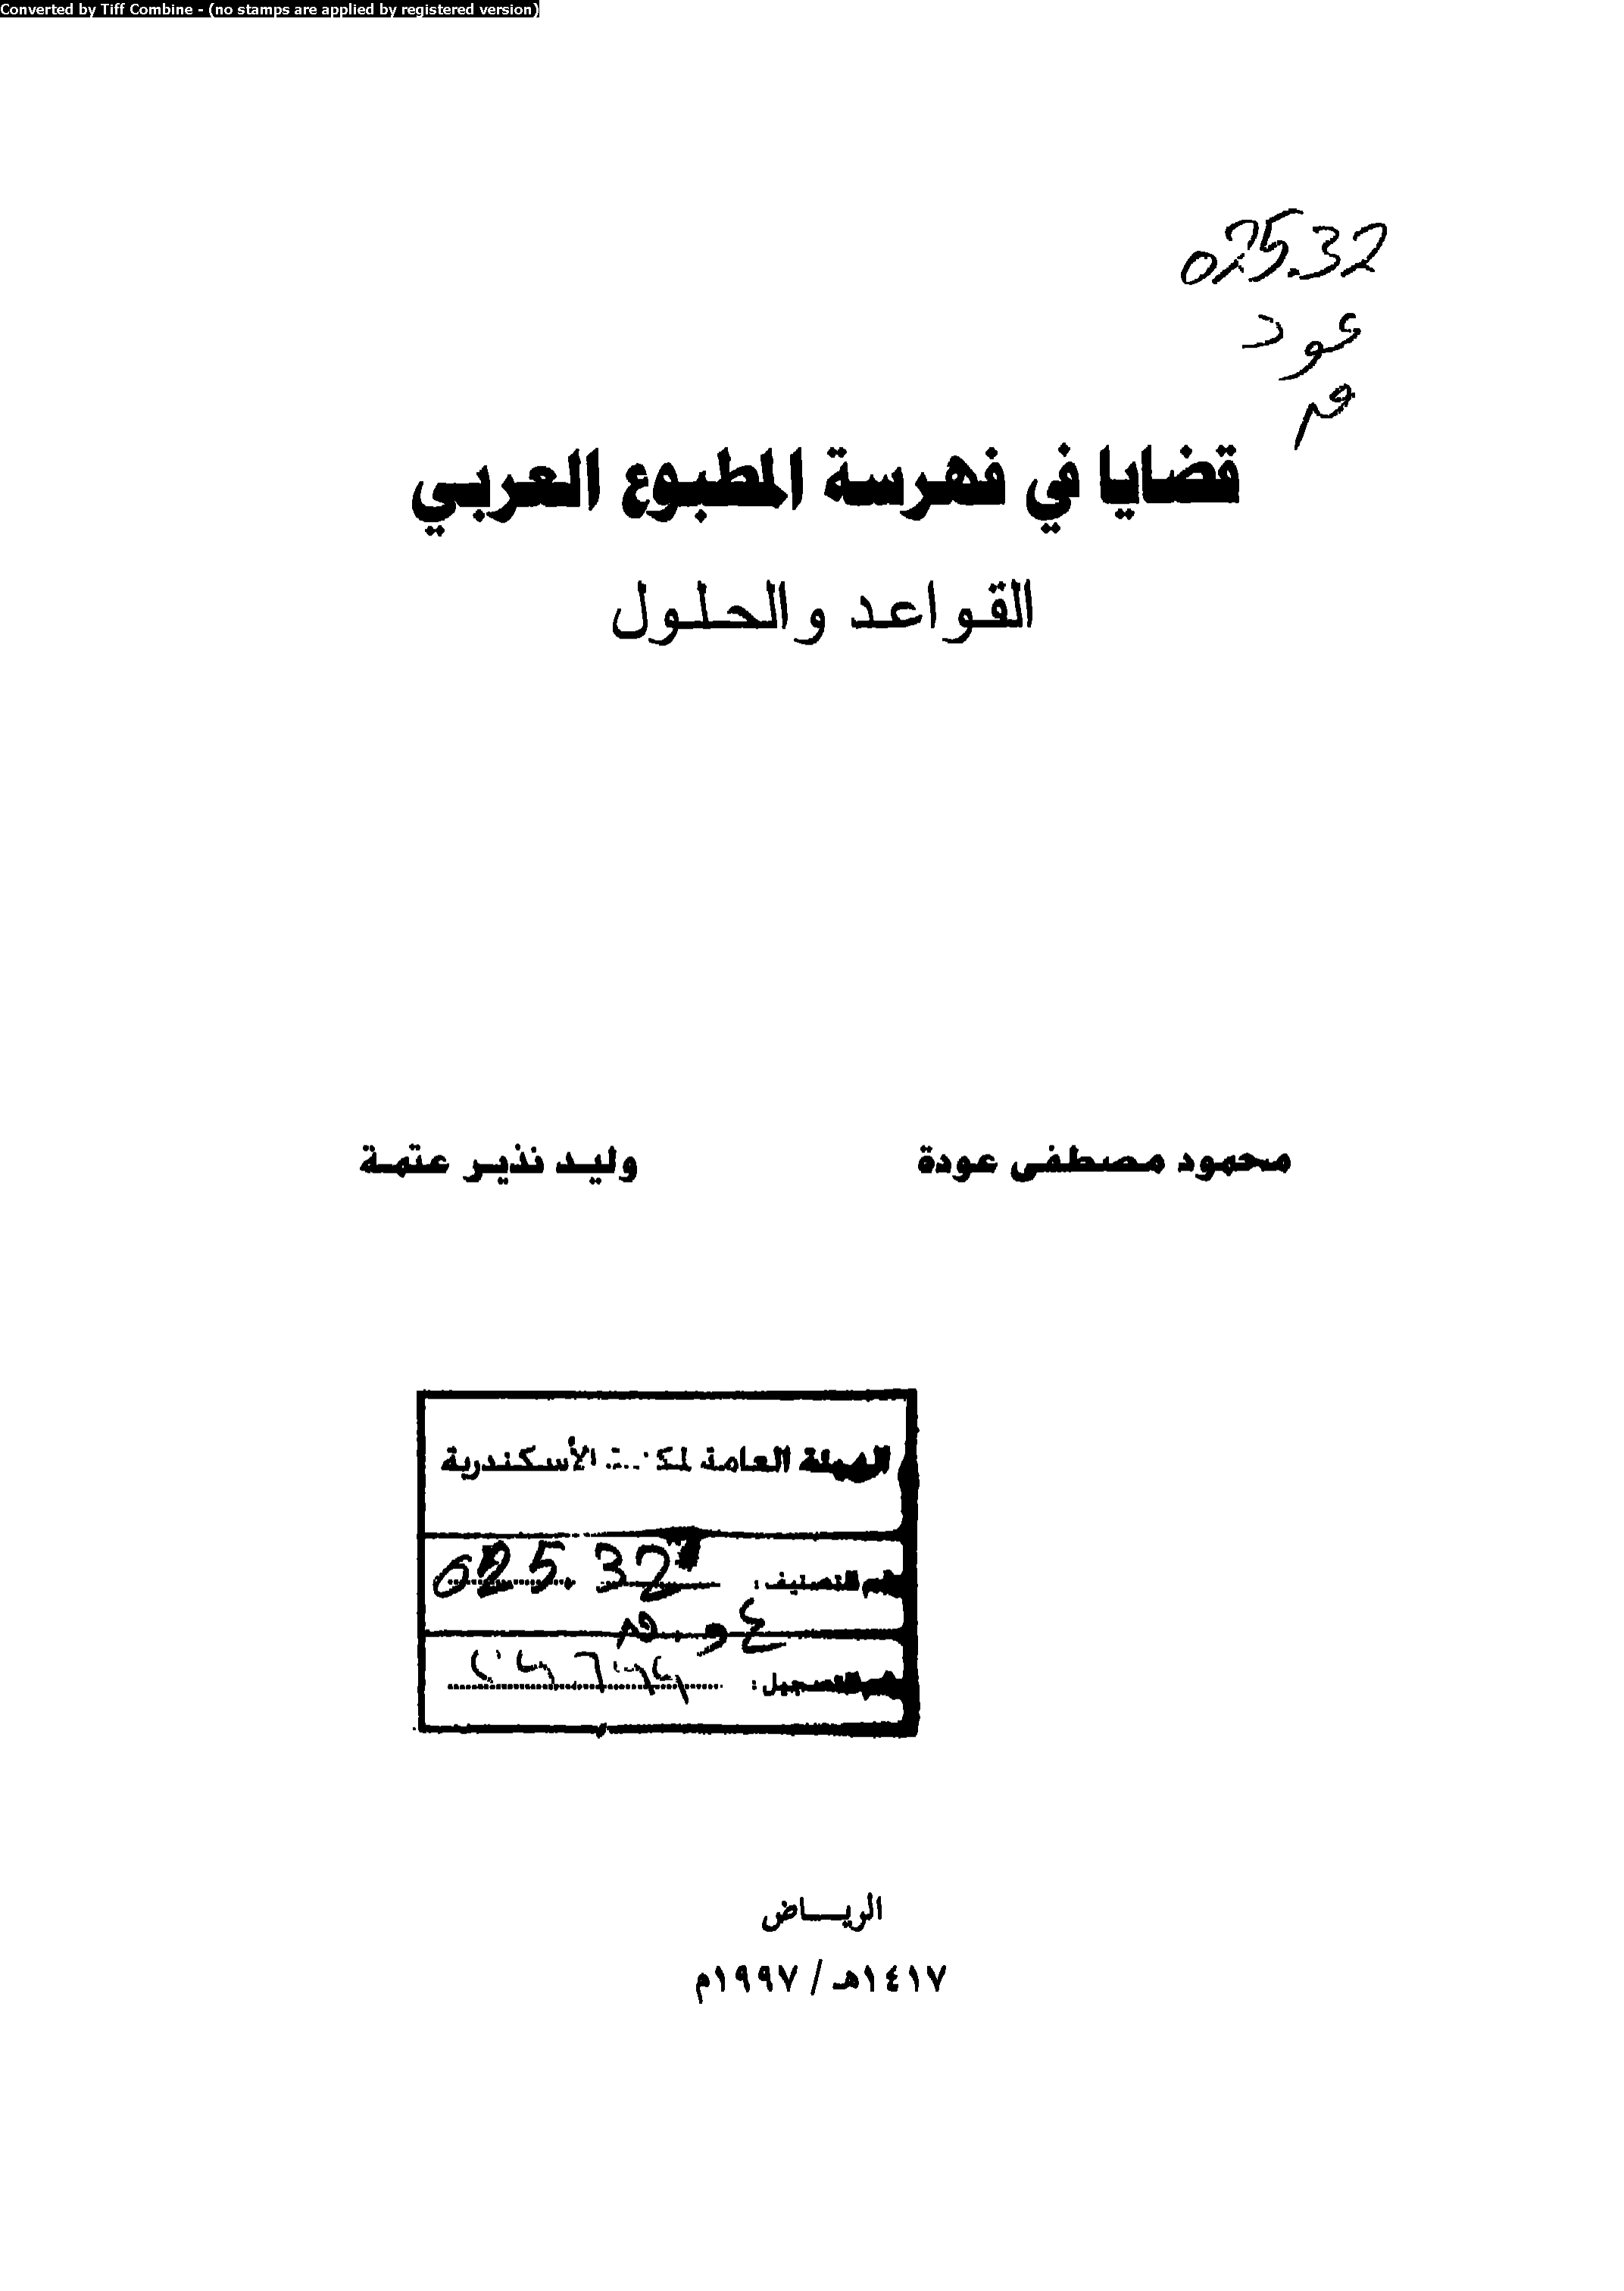 Converted by Tiff Combine - (no stamps are applied by registered version)
025.32
عود
م
قضايا في فهرسة المطبوع العربي
القواعد والحلول
محمود مصطفى عودة
وليد نذير عتمة
الهيئة العامة لمكتبة الأسكندرية
رقم التصنيف: 025.32
رقم التسجيل:
الريـــاض
١٤١٧هـ / ١٩٩٧م